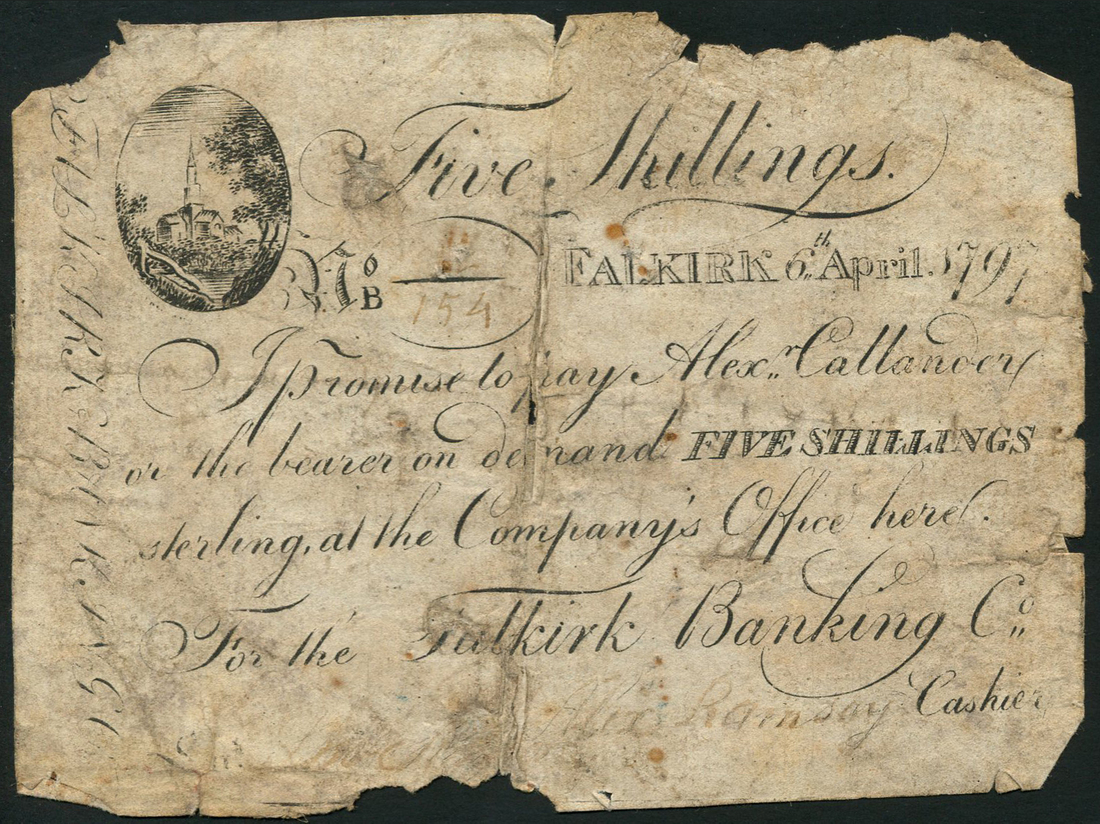 Five Shillings.
No B 154
FALKIRK 6th April 1797
I promise to pay Alexr. Callander
or the bearer on demand FIVE SHILLINGS
sterling, at the Company's Office here.
For the Falkirk Banking Co.
Alexr Ramsay Cashier
FALKIRK BANKING